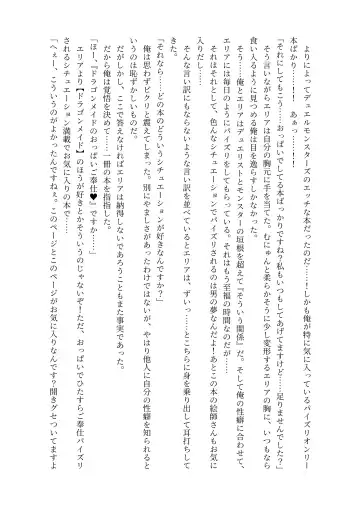 よりによってデュエルモンスターズのエッチな本だったのだ……！しかも俺が特に気に入っているパイズリオンリー
本ばかり……！　あぁっ……！
「それにしてもこう……おっぱいでしてる本ばっかりですね？私もいつもしてあげてますけど……足りませんでした？」
そう言いながらエリアは自分の胸元に手を当てた。むにゅんと柔らかそうに少し変形するエリアの胸に、いつもなら
食い入るように見つめる俺は目を逸らすしかなかった。
そう……俺とエリアはデュエリストとモンスターの垣根を超えて『そういう関係』だ。そして俺の性癖に合わせて、
エリアには毎日のようにパイズリをしてもらっている。それはもう至福の時間なのだが……
それはそれとして、色んなシチュエーションでパイズリされるのは男の夢なんだよ！あとこの本の絵師さんもお気に
入りだし……
そんな言い訳にもならないような言い訳を並べているとエリアは、ずいっ……とこちらに身を乗り出して耳打ちして
きた。
「それなら……どの本のどういうシチュエーションが好きなんですか？」
俺は思わずビクリと震えてしまった。別にやましさがあったわけではないが、やはり他人に自分の性癖を知られると
いうのは恥ずかしいものだ。
だがしかし、ここで答えなければエリアは納得しないであろうこともまた事実であった。
だから俺は覚悟を決めて……一冊の本を指指した。
「ほー、『ドラゴンメイドのおっぱいご奉仕♥』ですか……」
エリアより【ドラゴンメイド】のほうが好きとかそういうのじゃないぞ！ただ、おっぱいでひたすらご奉仕パイズリ
されるシチュエーション満載でお気に入りの本で……
「へぇー、こういうのがよかったんですねぇ。このページとこのページがお気に入りなんです？開きグセついてますよ